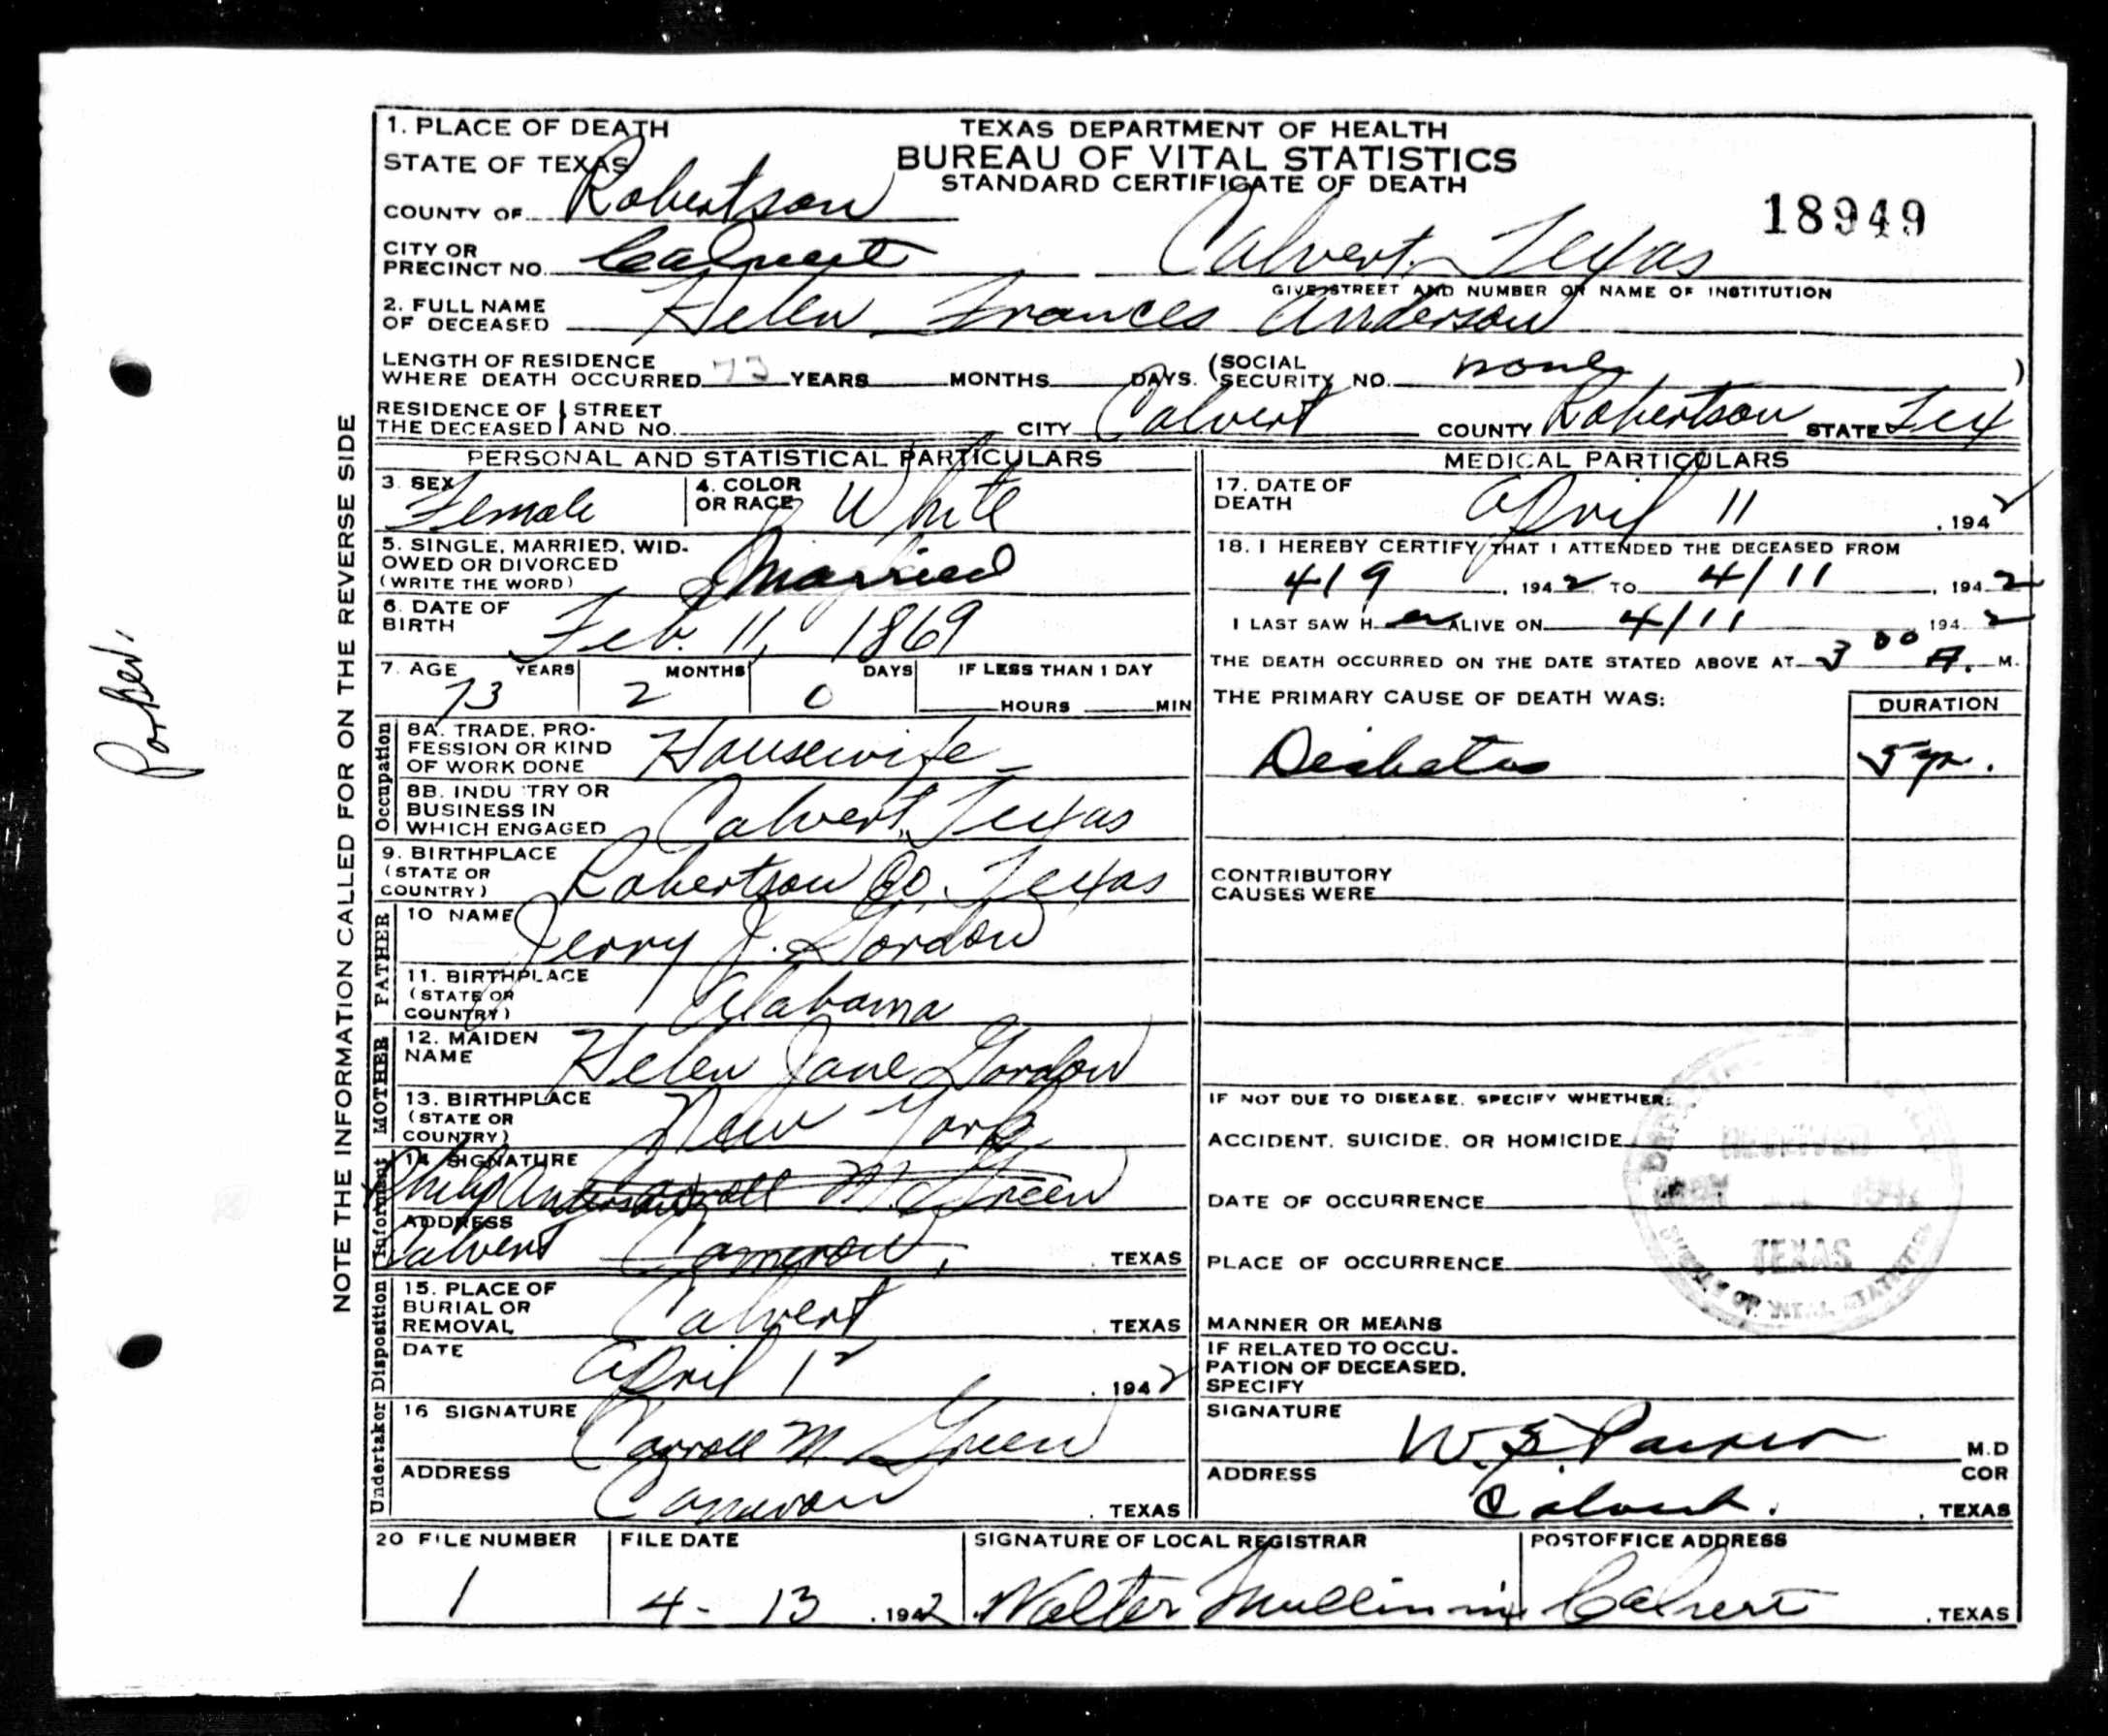 1. PLACE OF DEATH
STATE OF TEXAS
COUNTY OF Robertson
CITY OR PRECINCT NO. Calvert
TEXAS DEPARTMENT OF HEALTH
BUREAU OF VITAL STATISTICS
STANDARD CERTIFICATE OF DEATH
18949
Calvert, Texas
GIVE STREET AND NUMBER OR NAME OF INSTITUTION
2. FULL NAME OF DECEASED Helen Frances Anderson
LENGTH OF RESIDENCE WHERE DEATH OCCURRED 73 YEARS MONTHS DAYS. (SOCIAL SECURITY NO. none )
RESIDENCE OF THE DECEASED STREET AND NO. CITY Calvert COUNTY Robertson STATE Tex
PERSONAL AND STATISTICAL PARTICULARS
3. SEX Female
4. COLOR OR RACE White
5. SINGLE, MARRIED, WIDOWED OR DIVORCED (WRITE THE WORD) Married
6. DATE OF BIRTH Feb. 11, 1869
7. AGE YEARS MONTHS DAYS IF LESS THAN 1 DAY
73 2 0 HOURS MIN
Occupation
8A. TRADE, PROFESSION OR KIND OF WORK DONE Housewife
8B. INDU TRY OR BUSINESS IN WHICH ENGAGED Calvert, Texas
9. BIRTHPLACE (STATE OR COUNTRY) Robertson Co, Texas
FATHER
10 NAME Jerry J. Gordon
11. BIRTHPLACE (STATE OR COUNTRY) Alabama
MOTHER
12. MAIDEN NAME Helen Jane Gordon
13. BIRTHPLACE (STATE OR COUNTRY) New York
Informant
14 SIGNATURE Philip Anderson Carroll M. Green
ADDRESS Calvert Cameron, TEXAS
Disposition
15. PLACE OF BURIAL OR REMOVAL Calvert, TEXAS
DATE April 12, 1942
Undertaker
16 SIGNATURE Carroll M. Green
ADDRESS Cameron, TEXAS
MEDICAL PARTICULARS
17. DATE OF DEATH April 11, 1942
18. I HEREBY CERTIFY THAT I ATTENDED THE DECEASED FROM
4/9, 1942 TO 4/11, 1942
I LAST SAW H er ALIVE ON 4/11 1942
THE DEATH OCCURRED ON THE DATE STATED ABOVE AT 3 00 A. M.
THE PRIMARY CAUSE OF DEATH WAS: DURATION
Diabetes 5 yr.
CONTRIBUTORY CAUSES WERE
IF NOT DUE TO DISEASE, SPECIFY WHETHER:
ACCIDENT, SUICIDE, OR HOMICIDE
DATE OF OCCURRENCE
PLACE OF OCCURRENCE
MANNER OR MEANS
IF RELATED TO OCCUPATION OF DECEASED, SPECIFY
RECEIVED
TEXAS
BUREAU OF VITAL STATISTICS
SIGNATURE W. S. Parker M.D COR
ADDRESS Calvert, TEXAS
20 FILE NUMBER 1
FILE DATE 4-13, 1942
SIGNATURE OF LOCAL REGISTRAR Walter Mullins
POSTOFFICE ADDRESS Calvert, TEXAS
NOTE THE INFORMATION CALLED FOR ON THE REVERSE SIDE
Parker,